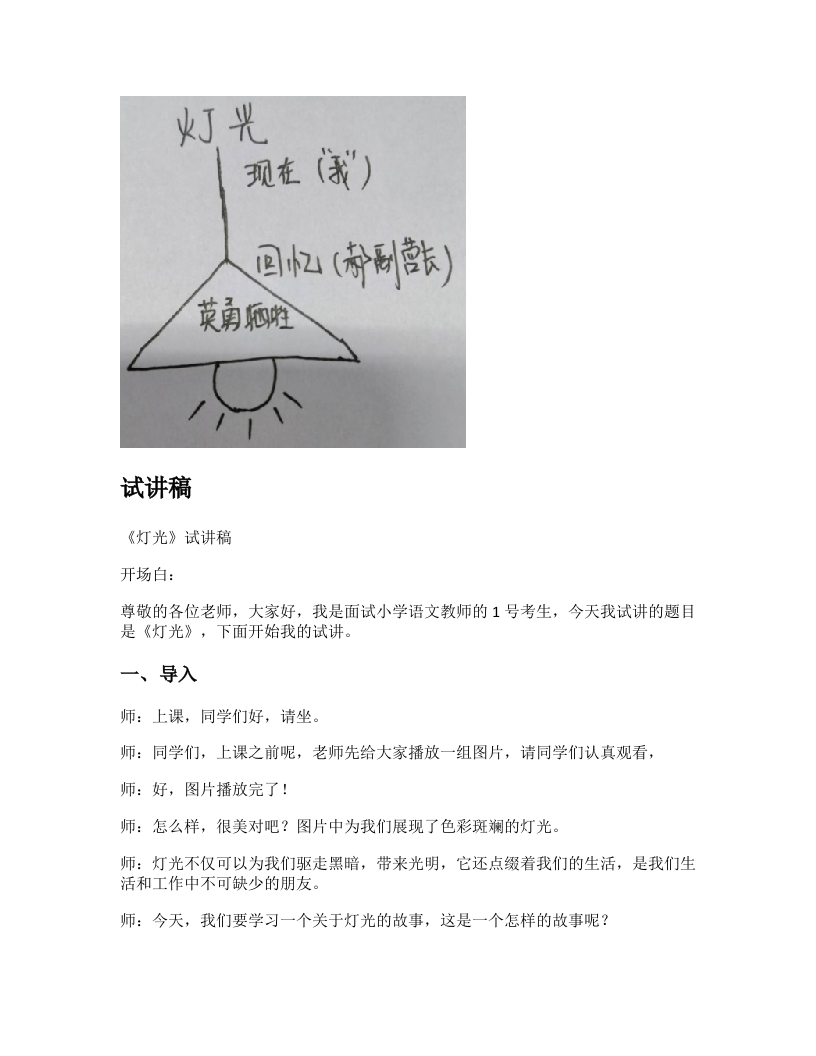 灯光
现在（“我”）
回忆（郝副营长）
英勇牺牲
试讲稿
《灯光》试讲稿
开场白：
尊敬的各位老师，大家好，我是面试小学语文教师的 1 号考生，今天我试讲的题目
是《灯光》，下面开始我的试讲。
一、导入
师：上课，同学们好，请坐。
师：同学们，上课之前呢，老师先给大家播放一组图片，请同学们认真观看，
师：好，图片播放完了！
师：怎么样，很美对吧？图片中为我们展现了色彩斑斓的灯光。
师：灯光不仅可以为我们驱走黑暗，带来光明，它还点缀着我们的生活，是我们生
活和工作中不可缺少的朋友。
师：今天，我们要学习一个关于灯光的故事，这是一个怎样的故事呢？